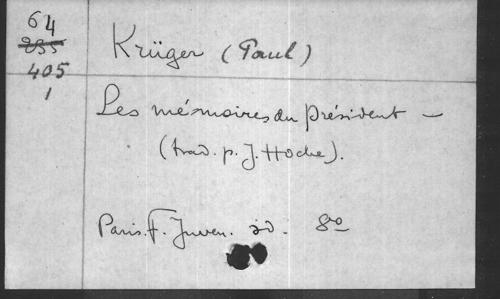 64
235
405
1
Krüger (Paul)
Les mémoires du président –
(trad. p. J. Hoche).
Paris. F. Juven. sd. 8º